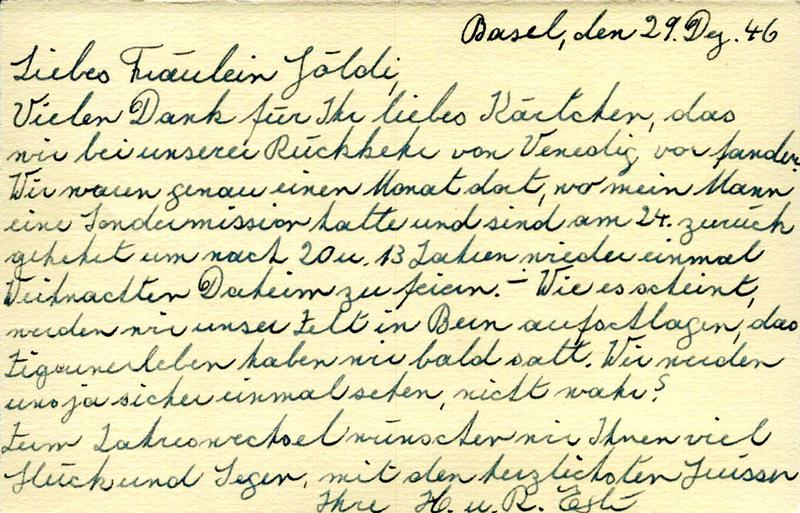 Basel, den 29. Dez. 46
Liebes Fräulein Göldi,
Vielen Dank für Ihr liebes Kärtchen, das
wir bei unserer Rückkehr von Venedig vor fanden.
Wir waren genau einen Monat dort, wo mein Mann
eine Sondermission hatte und sind am 24. zurück
gekehrt um nach 20 u. 13 Jahren wieder einmal
Weihnachten Daheim zu feiern. – Wie es scheint,
werden wir unser Zelt in Bern aufschlagen, das
Zigeunerleben haben wir bald satt. Wir werden
uns ja sicher einmal sehen, nicht wahr?
Zum Jahreswechsel wünschen wir Ihnen viel
Glück und Segen, mit den herzlichsten Grüssen
Ihre H. u. R.